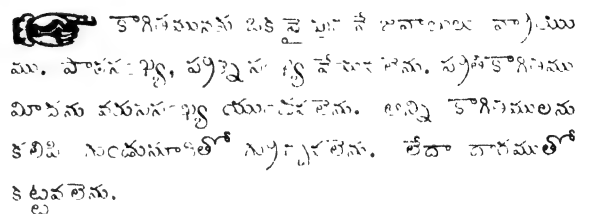 కాగితమునకు ఒక వైపునే జవాబులు వ్రాయు
ము. పాఠసంఖ్య, ప్రశ్న సంఖ్య వేయవలెను. ప్రతికాగితము
మీదను వరుససంఖ్య యుండవలెను. అన్ని కాగితములను
కలిపి గుండుసూదితో గుచ్చవలెను. లేదా దారముతో
కట్టవలెను.